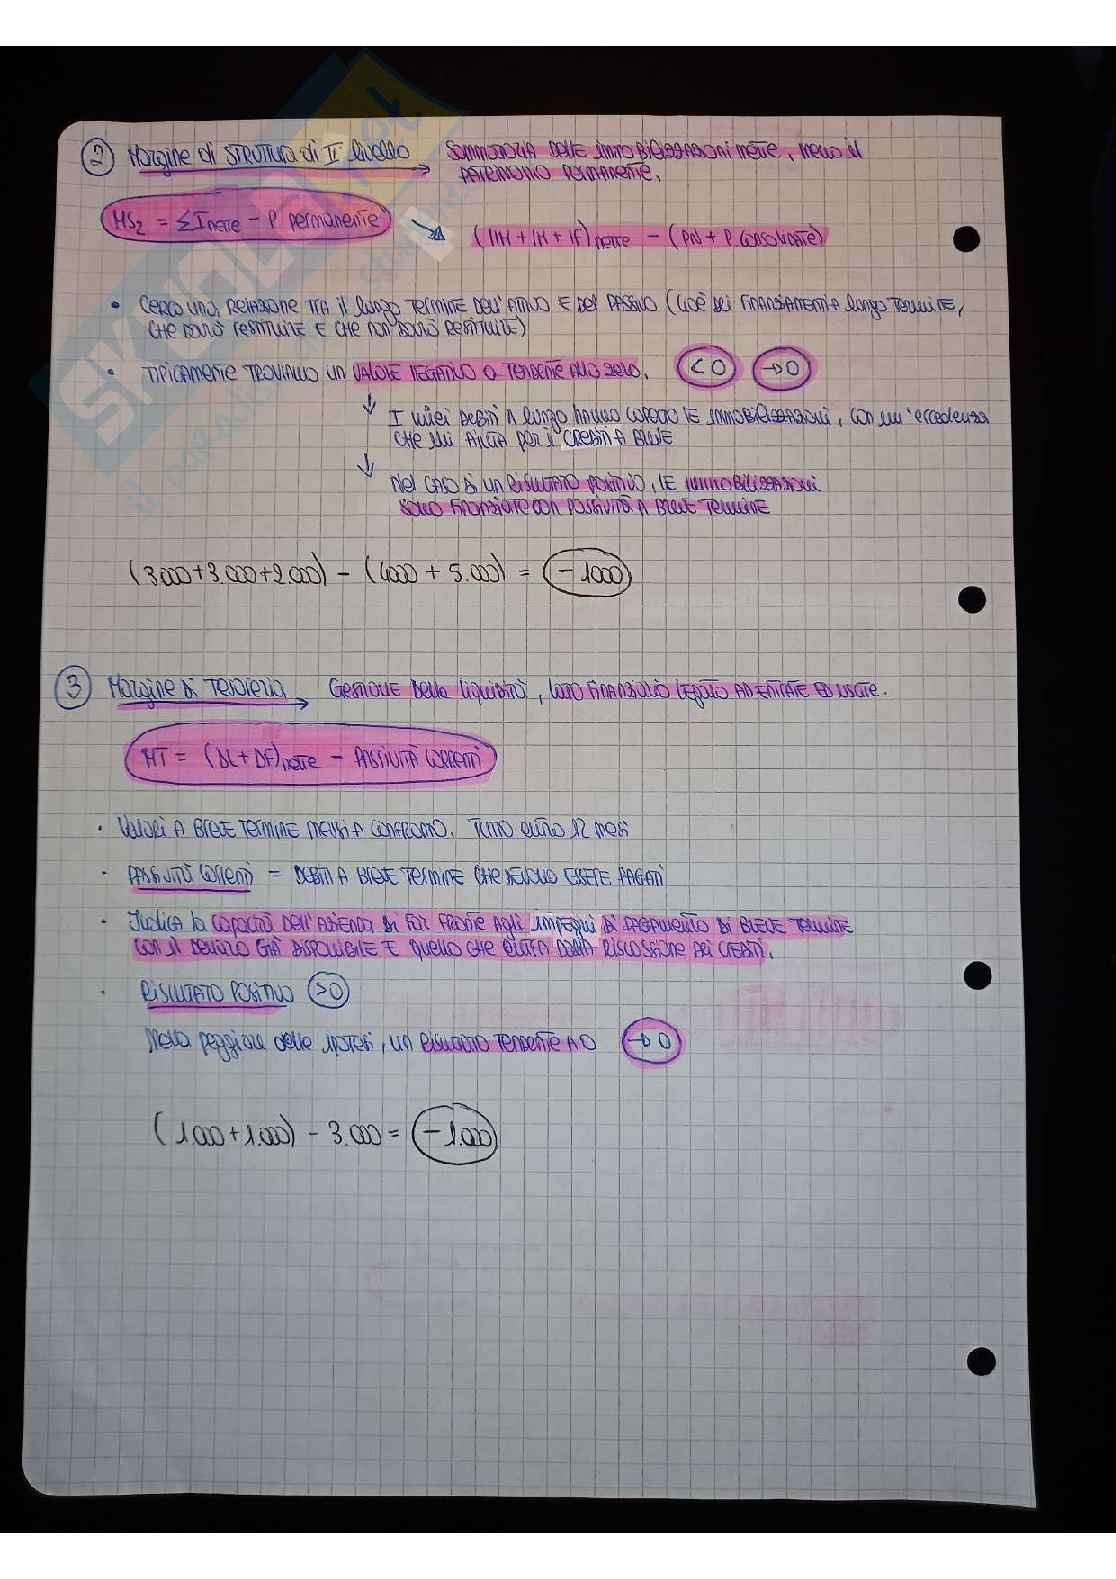 2 Margine di STRUTTURA di II livello → SOMMATORIA DELLE IMMOBILIZZAZIONI NETTE, meno il
PATRIMONIO PERMANENTE.
MS2 = ΣI nette - P permanente → (IM + IM + IF) nette - (PN + P CONSOLIDATE)
• CERCO UNA RELAZIONE TRA il lungo TERMINE DELL'ATTIVO E DEL PASSIVO (CIOÈ DEI FINANZIAMENTI A lungo TERMINE,
CHE SONO RESTITUITE E CHE NON SONO RESTITUITE)
• TIPICAMENTE TROVIAMO UN VALORE NEGATIVO O TENDENTE ALLO ZERO. <0 →0
↓ I miei DEBITI A lungo hanno COPERTO LE IMMOBILIZZAZIONI, con un'eccedenza
CHE MI AIUTA per i CREDITI A BREVE
↓ Nel CASO di UN RISULTATO POSITIVO, LE IMMOBILIZZAZIONI
SONO FINANZIATE CON PASSIVITÀ A BREVE TERMINE
(3.000+3.000+2.000) - (4000 + 5.000) = -1000
3 Margine di TESORERIA → GESTIONE DELLA LIQUIDITÀ, LATO FINANZIARIO LEGATO AD ENTRATE ED USCITE.
MT = (DL + DF) nette - PASSIVITÀ CORRENTI
• VALORI A BREVE TERMINE MESSI A CONFRONTO. TUTTO ENTRO 12 MESI
• PASSIVITÀ CORRENTI = DEBITI A BREVE TERMINE CHE DEVONO ESSERE PAGATI
• Indica la CAPACITÀ DELL'AZIENDA DI FAR FRONTE AGLI IMPEGNI DI PAGAMENTO DI BREVE TERMINE
CON IL DENARO GIÀ DISPONIBILE E QUELLO CHE ENTRA DALLA RISCOSSIONE DEI CREDITI.
• RISULTATO POSITIVO >0
Nella peggiore delle ipotesi, UN RISULTATO TENDENTE A 0 →0
(1.000+1.000) - 3.000 = -1.000